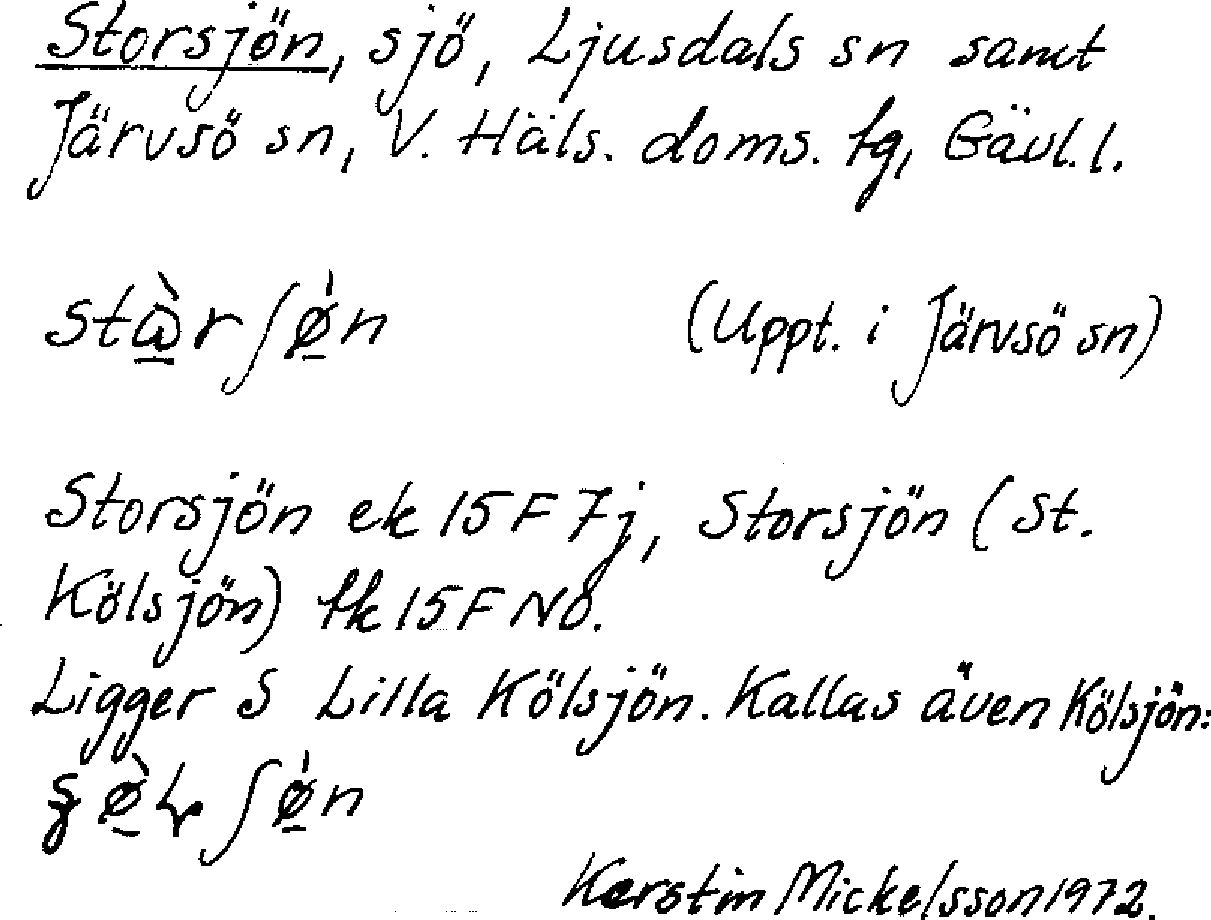 Storsjön, sjö, Ljusdals sn samt
Järvsö sn, V. Häls. doms. tg, Gävl. l.
(Uppt. i Järvsö sn)
Storsjön ek 15 F 7j, Storsjön (St.
Kölsjön) tk 15 F NO.
Ligger S Lilla Kölsjön. Kallas även Kölsjön:
Kerstin Mickelsson 1972.